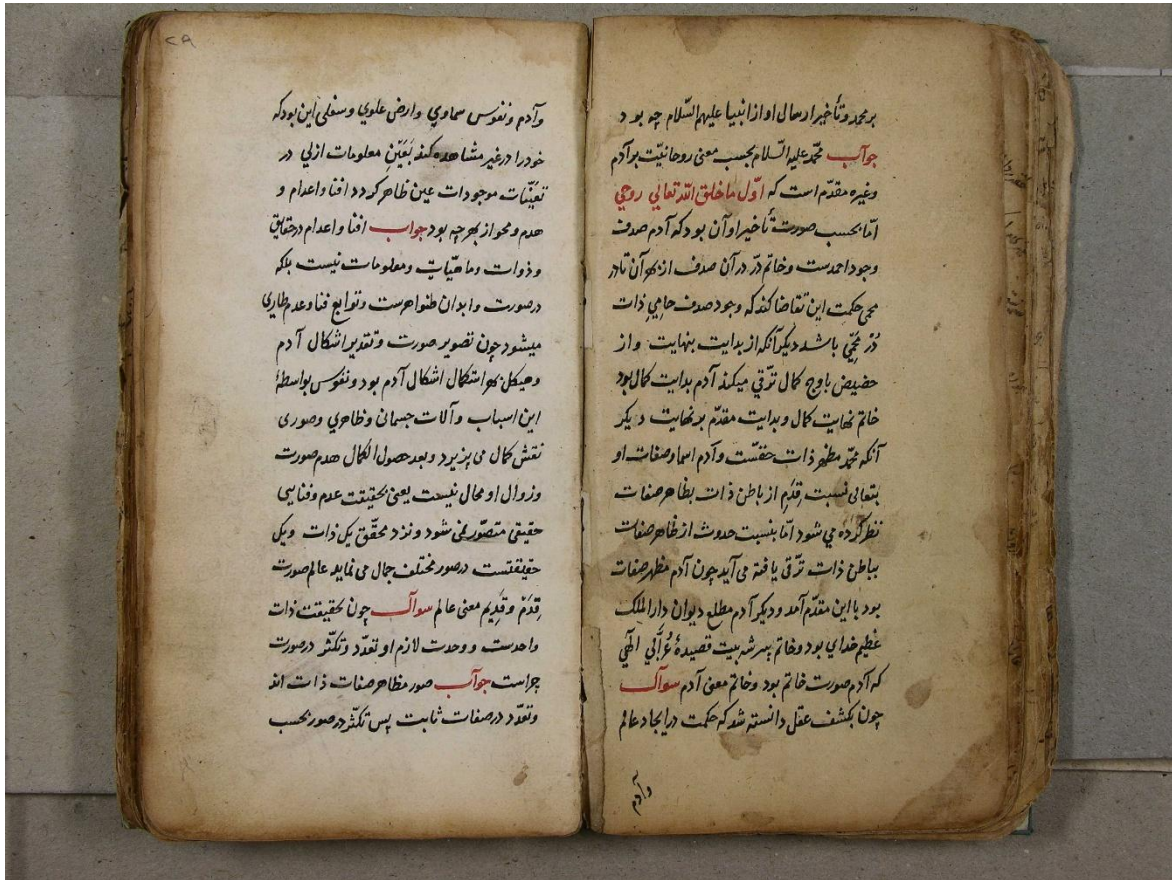 بر محمد و تأخیر ارسال او از انبیا علیهم السّلام چه بود
جواب محمّد علیه السّلام بحسب معنی روحانیّت بر آدم
وغیره مقدّم است که اوّل ما خلق اللّه تعالی روحي
امّا بحسب صورت تأخیر او آن بود که آدم صدف
وجود احمدست وخاتم درّ در آن صدف از بهر آن تا در
حکمت این تقاضا کند که وجود صدف حامي ذات
باشد دیکر آنکه از بدایت بنهایت و از
حضیض باوج کمال ترّقي میکند آدم بدایت کمال بود
خاتم نهایت کمال و بدایت مقدّم بر نهایت دیکر
آنکه محمّد مظهر ذات حقست وآدم اسما وصفات او
بتعالی نسبت قِدَم از باطن ذات بظاهر صفات
نظر کرده مي شود امّا بنسبت حدوث از ظاهر صفات
بباطن ذات ترّقی یافته می آید چون آدم مظهر صفات
بود با این مقدّم آمد و دیکر آدم مطلع دیوان دار الملک
عظیم خدای بود وخاتم بیت قصیدهٔ الٓهي
که آدم صورت خاتم بود وخاتم معنی آدم سوآل
چون بکشف عقل دانسته شد که حکمت در ایجاد عالم
وآدم
وآدم ونفوس سماوي وارضی علوي وسفلی این بود که
خود را در غیر مشاهده کند بتعیّن معلومات ازلي در
تعیّنات موجودات عین ظاهر کردد افنا واعدام و
هدم ومحو از بهر چه بود جواب افنا واعدام در حقایق
وذوات وماهیّات ومعلومات نیست بلکه
در صورت وابدان ظواهرست وتوابع فنا وعدم طاری
میشود چون تصویر صورت وتقدیر اشکال آدم
وهیکل بهر اشکال آدم بود ونفوس بواسطهٔ
این اسباب وآلات جسمانی وظاهري وصوری
نقش کمال می پزیرد وبعد حصول الکمال هدم صورت
وزوال او محال نیست یعنی بحقیقت عدم وفنایی
حقیقی متصّور نمی شود ونزد محقّق یک ذات ویک
حقیقتست در صور مختلف جمال می نماید عالم صورت
قِدَمْ وقَدِیم معنی عالم سوآل چون بحقیقت ذات
واحدست و وحدت لازم او تعدّد وتکثّر در صورت
چراست جوآب صور مظاهر صفات ذات اند
وتعدّد در صفات ثابت پس تکثّر در صور بحسب